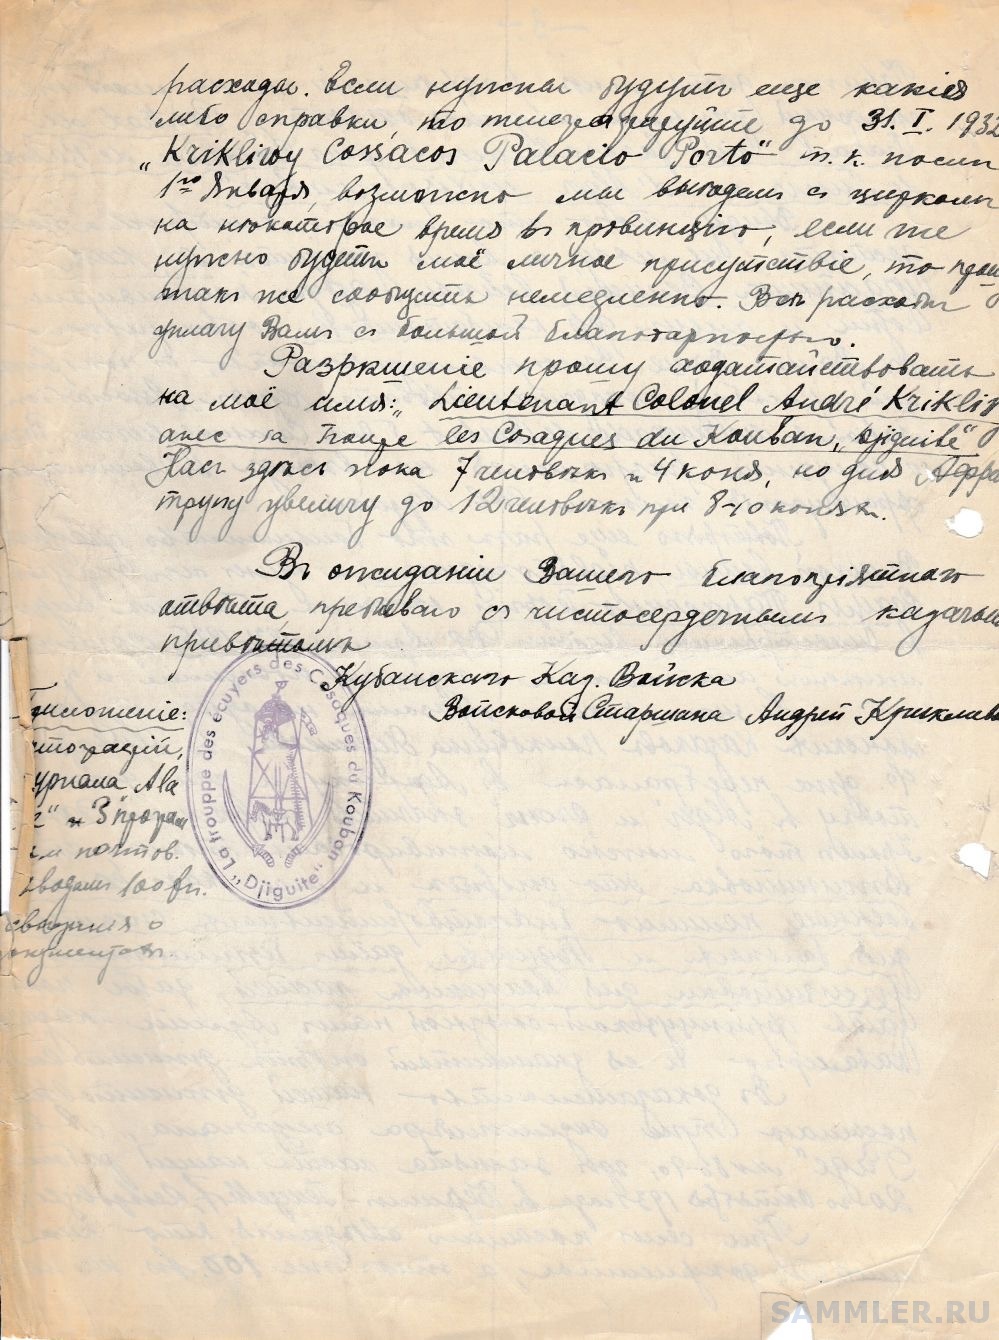 расходы. Если нужны будутъ еще какія
либо справки, то телеграфируйте до 31. I. 1932
„Krikliwy Cossacos Palacio Porto" т. к. послѣ
1го Января, возможно мы выѣдемъ съ циркомъ
на нѣкоторое время въ провинцію, если же
нужно будетъ моё личное присутствіе, то прошу
также сообщить немедленно. Всѣ расходы
уплачу Вамъ съ большой благодарностью.
Разрѣшеніе прошу ходатайствовать
на моё имя: „Lieutenant Colonel André Krikliy
avec sa Troupe les Cosaques du Kouban „Djiguite"
Насъ здѣсь пока 7 человѣкъ и 4 коня, но для Афри
трупу увеличу до 12 человѣкъ при 8-10 коняхъ.
Въ ожиданіи Вашего благопріятнаго
отвѣта, пребываю съ чистосердечнымъ казачьимъ
привѣтомъ
Кубанскаго Каз. Войска
Войсковой Старшина Андрей Крикливый
риложеніе:
тографій,
урнала, Ala
и 3 програм
почтов.
водамъ 100 fr.
свѣдѣнія о
окументахъ
La trouppe des écuyers des Cosaques du Kouban „Djiguite"
SAMMLER.RU